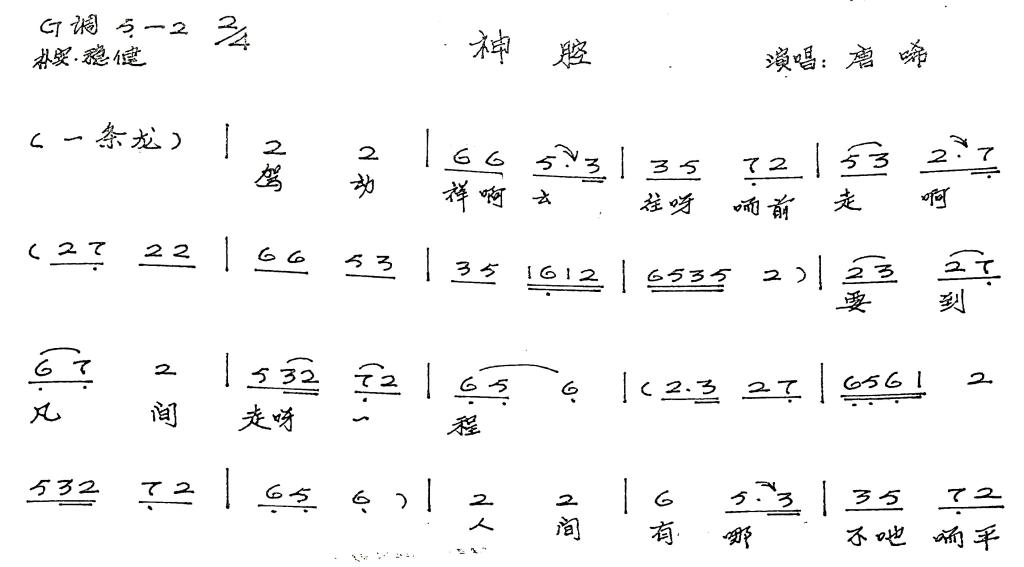 G调 5—2 2/4 神腔
朴实·稳健 演唱：唐唏
（一条龙）| 2 2 | 6 6 5·3 | 3 5 7 2 | 5 3 2·7
驾 动 祥啊 云 往呀 哂前 走 啊
（2 7 2 2 | 6 6 5 3 | 3 5 1 6 1 2 | 6 5 3 5 2）| 2 3 2 7
要 到
6 7 2 | 5 3 2 7 2 | 6 5 6 |（2·3 2 7 | 6 5 6 1 2
凡 间 走呀 一 程
5 3 2 7 2 | 6 5 6）| 2 2 | 6 5·3 | 3 5 7 2
人 间 有 哪 不吔 哂平